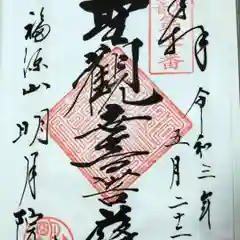 奉拝
令和三年
五月二十三
聖觀世音菩薩
福源山
明月院